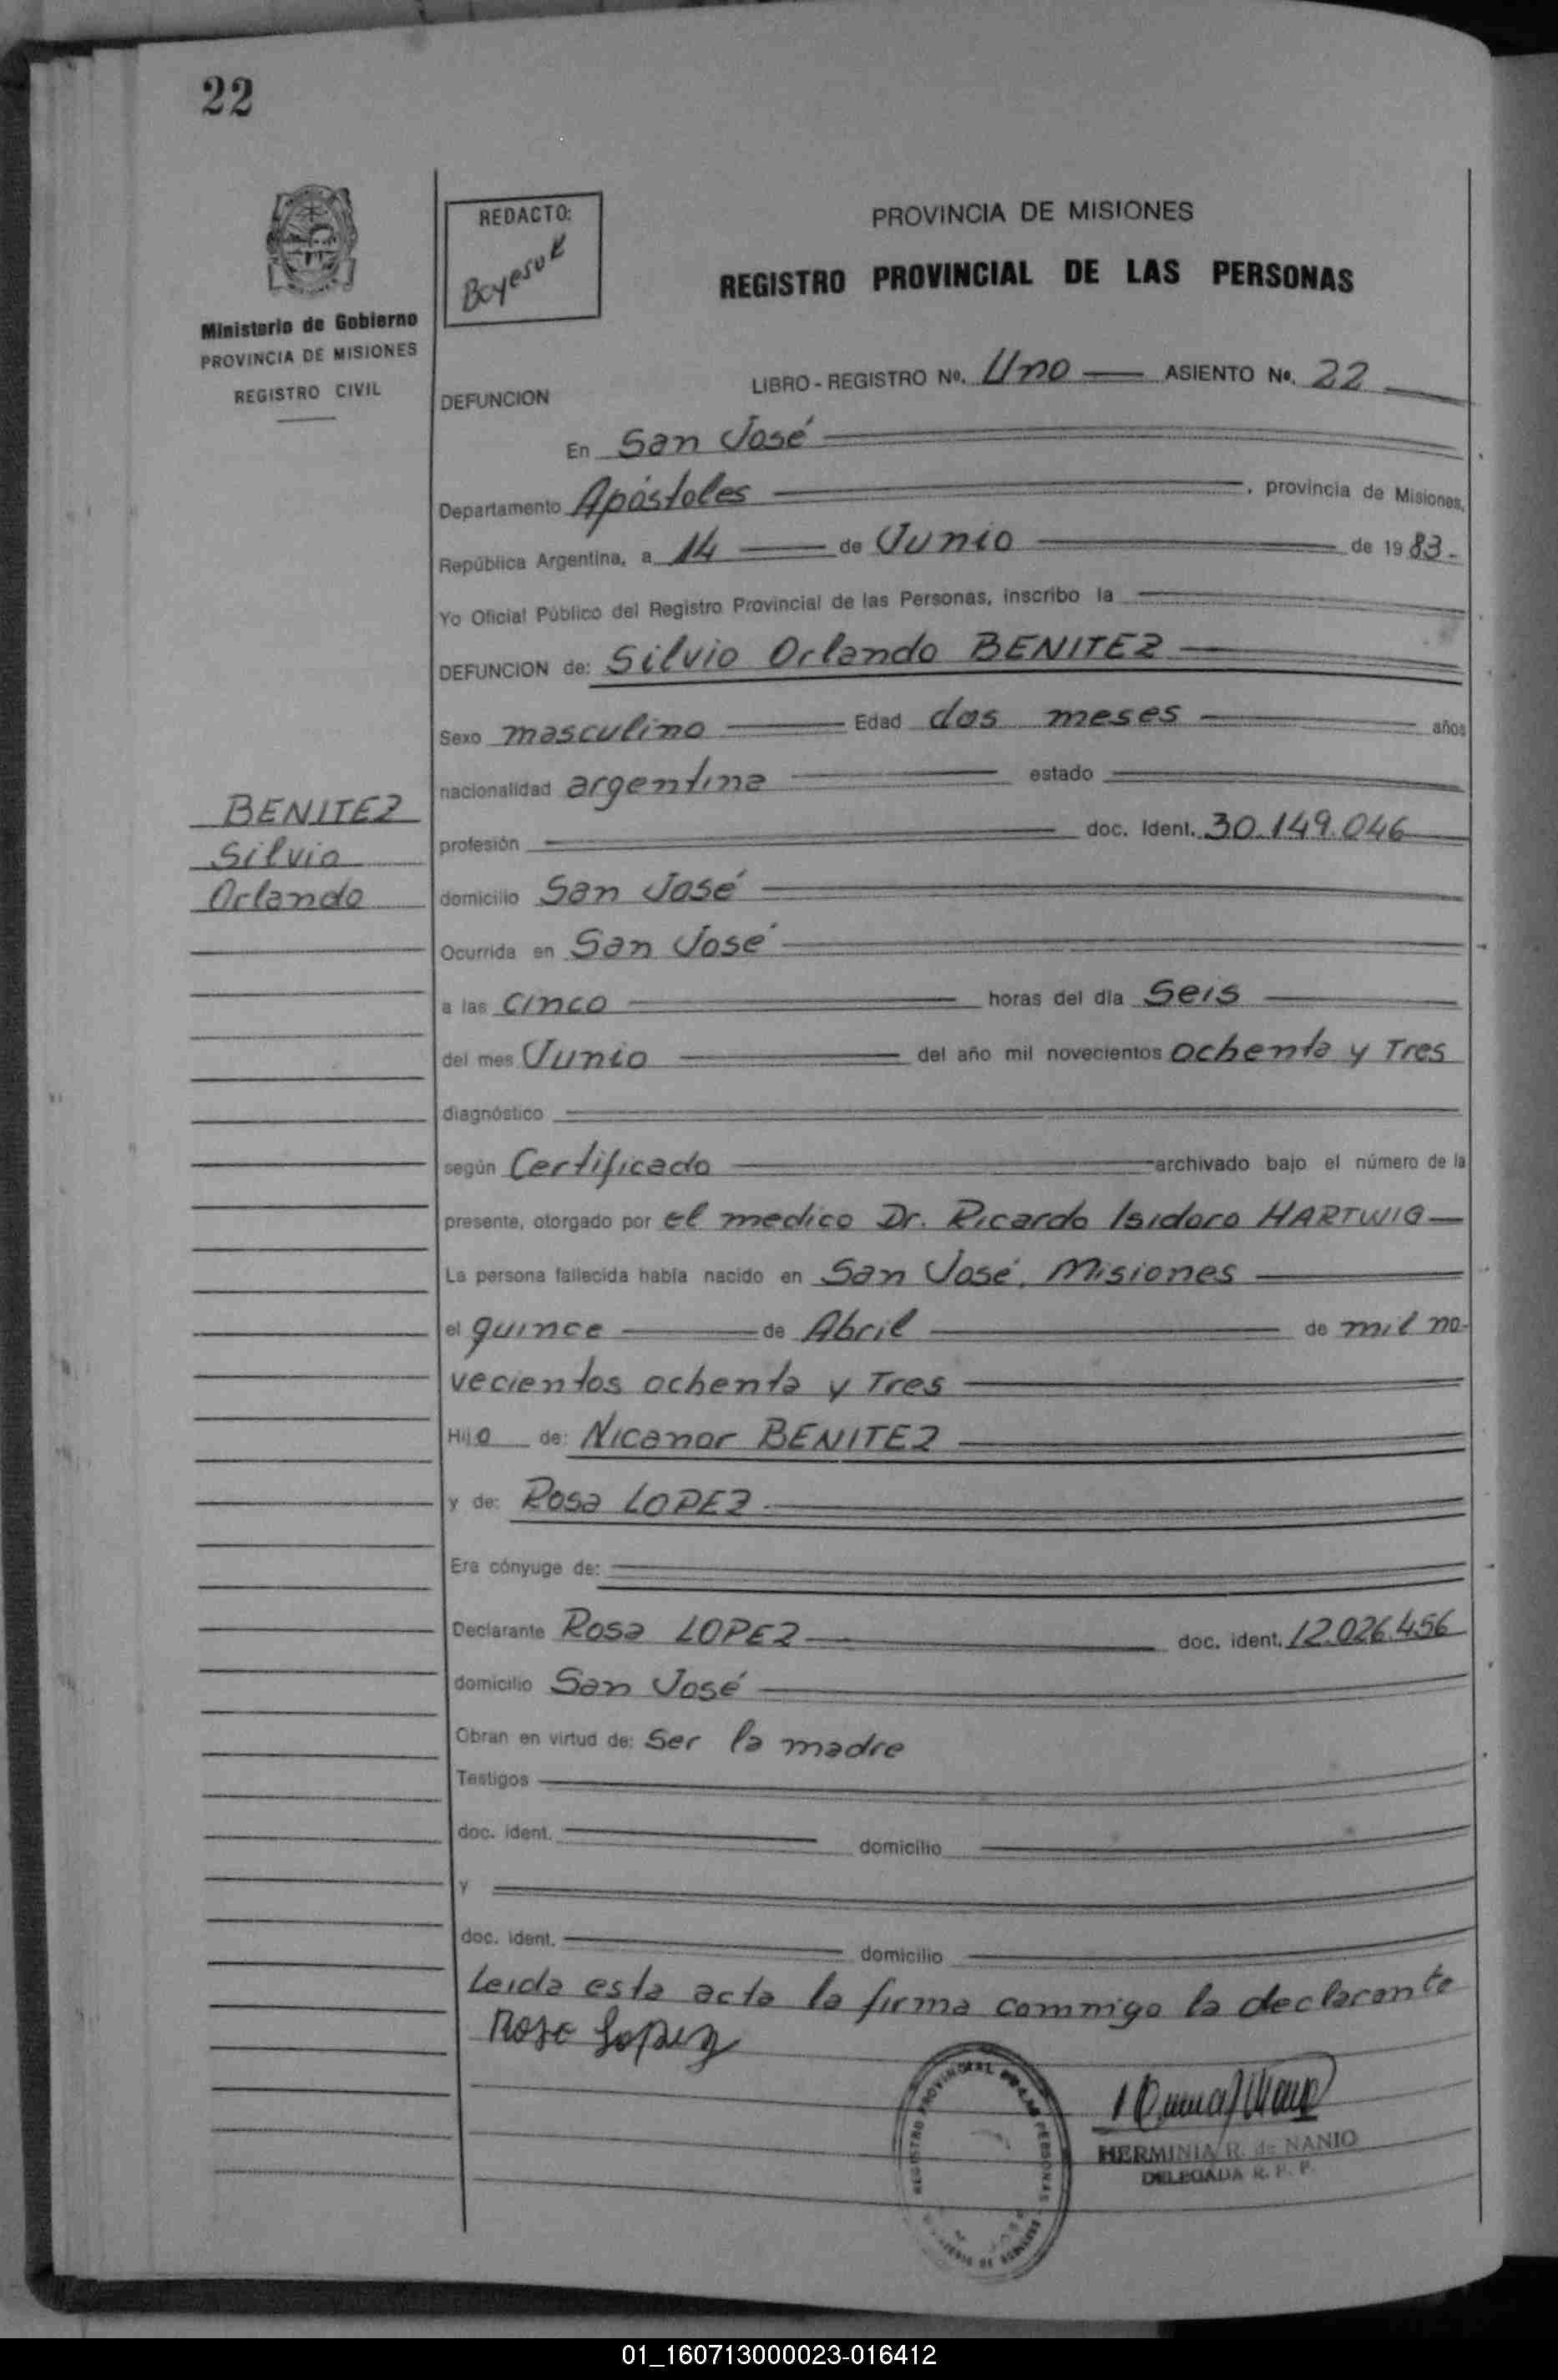 22
PROVINCIA DE MISIONES
REGISTRO PROVINCIAL DE LAS PERSONAS
Ministerio de Gobierno
PROVINCIA DE MISIONES
REGISTRO CIVIL
REDACTO:
LIBRO - REGISTRO Nº. Uno ASIENTO Nº. 22
DEFUNCION
En San José
Departamento Apóstoles, provincia de Misiones,
República Argentina, a 14 de Junio de 1983.
Yo Oficial Público del Registro Provincial de las Personas, inscribo la
DEFUNCION de: Silvio Orlando BENITEZ
Sexo masculino Edad dos meses años
nacionalidad argentina estado
BENITEZ
Silvio
Orlando
profesión doc. Ident. 30.149.046
domicilio San José
Ocurrida en San José
a las cinco horas del día Seis
del mes Junio del año mil novecientos ochenta y Tres
diagnóstico
según Certificado archivado bajo el número de la
presente, otorgado por el medico Dr. Ricardo Isidoro HARTWIG
La persona fallecida había nacido en San José, Misiones
el quince de Abril de mil no-
vecientos ochenta y Tres
Hijo de: Nicanor BENITEZ
y de: Rosa LOPEZ
Era cónyuge de:
Declarante Rosa LOPEZ doc. ident. 12.026.456
domicilio San José
Obran en virtud de: Ser la madre
Testigos
doc. ident. domicilio
y
doc. ident. domicilio
Leida esta acta la firma conmigo la declarante
Rosa Lopez
REGISTRO PROVINCIAL DE LAS PERSONAS
HERMINIA R. de NANIO
DELEGADA R. P. P.
01_160713000023-016412